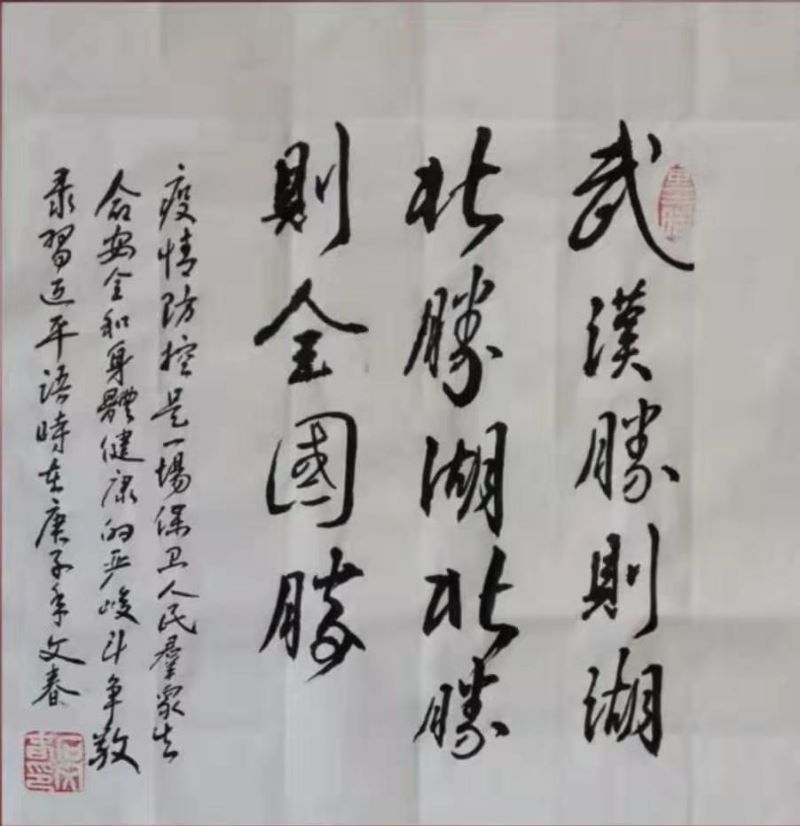 武漢勝則湖
北勝湖北勝
則全國勝
疫情防控是一場保卫人民羣衆生
命安全和身體健康的严峻斗争敬
录習近平語時在庚子年文春